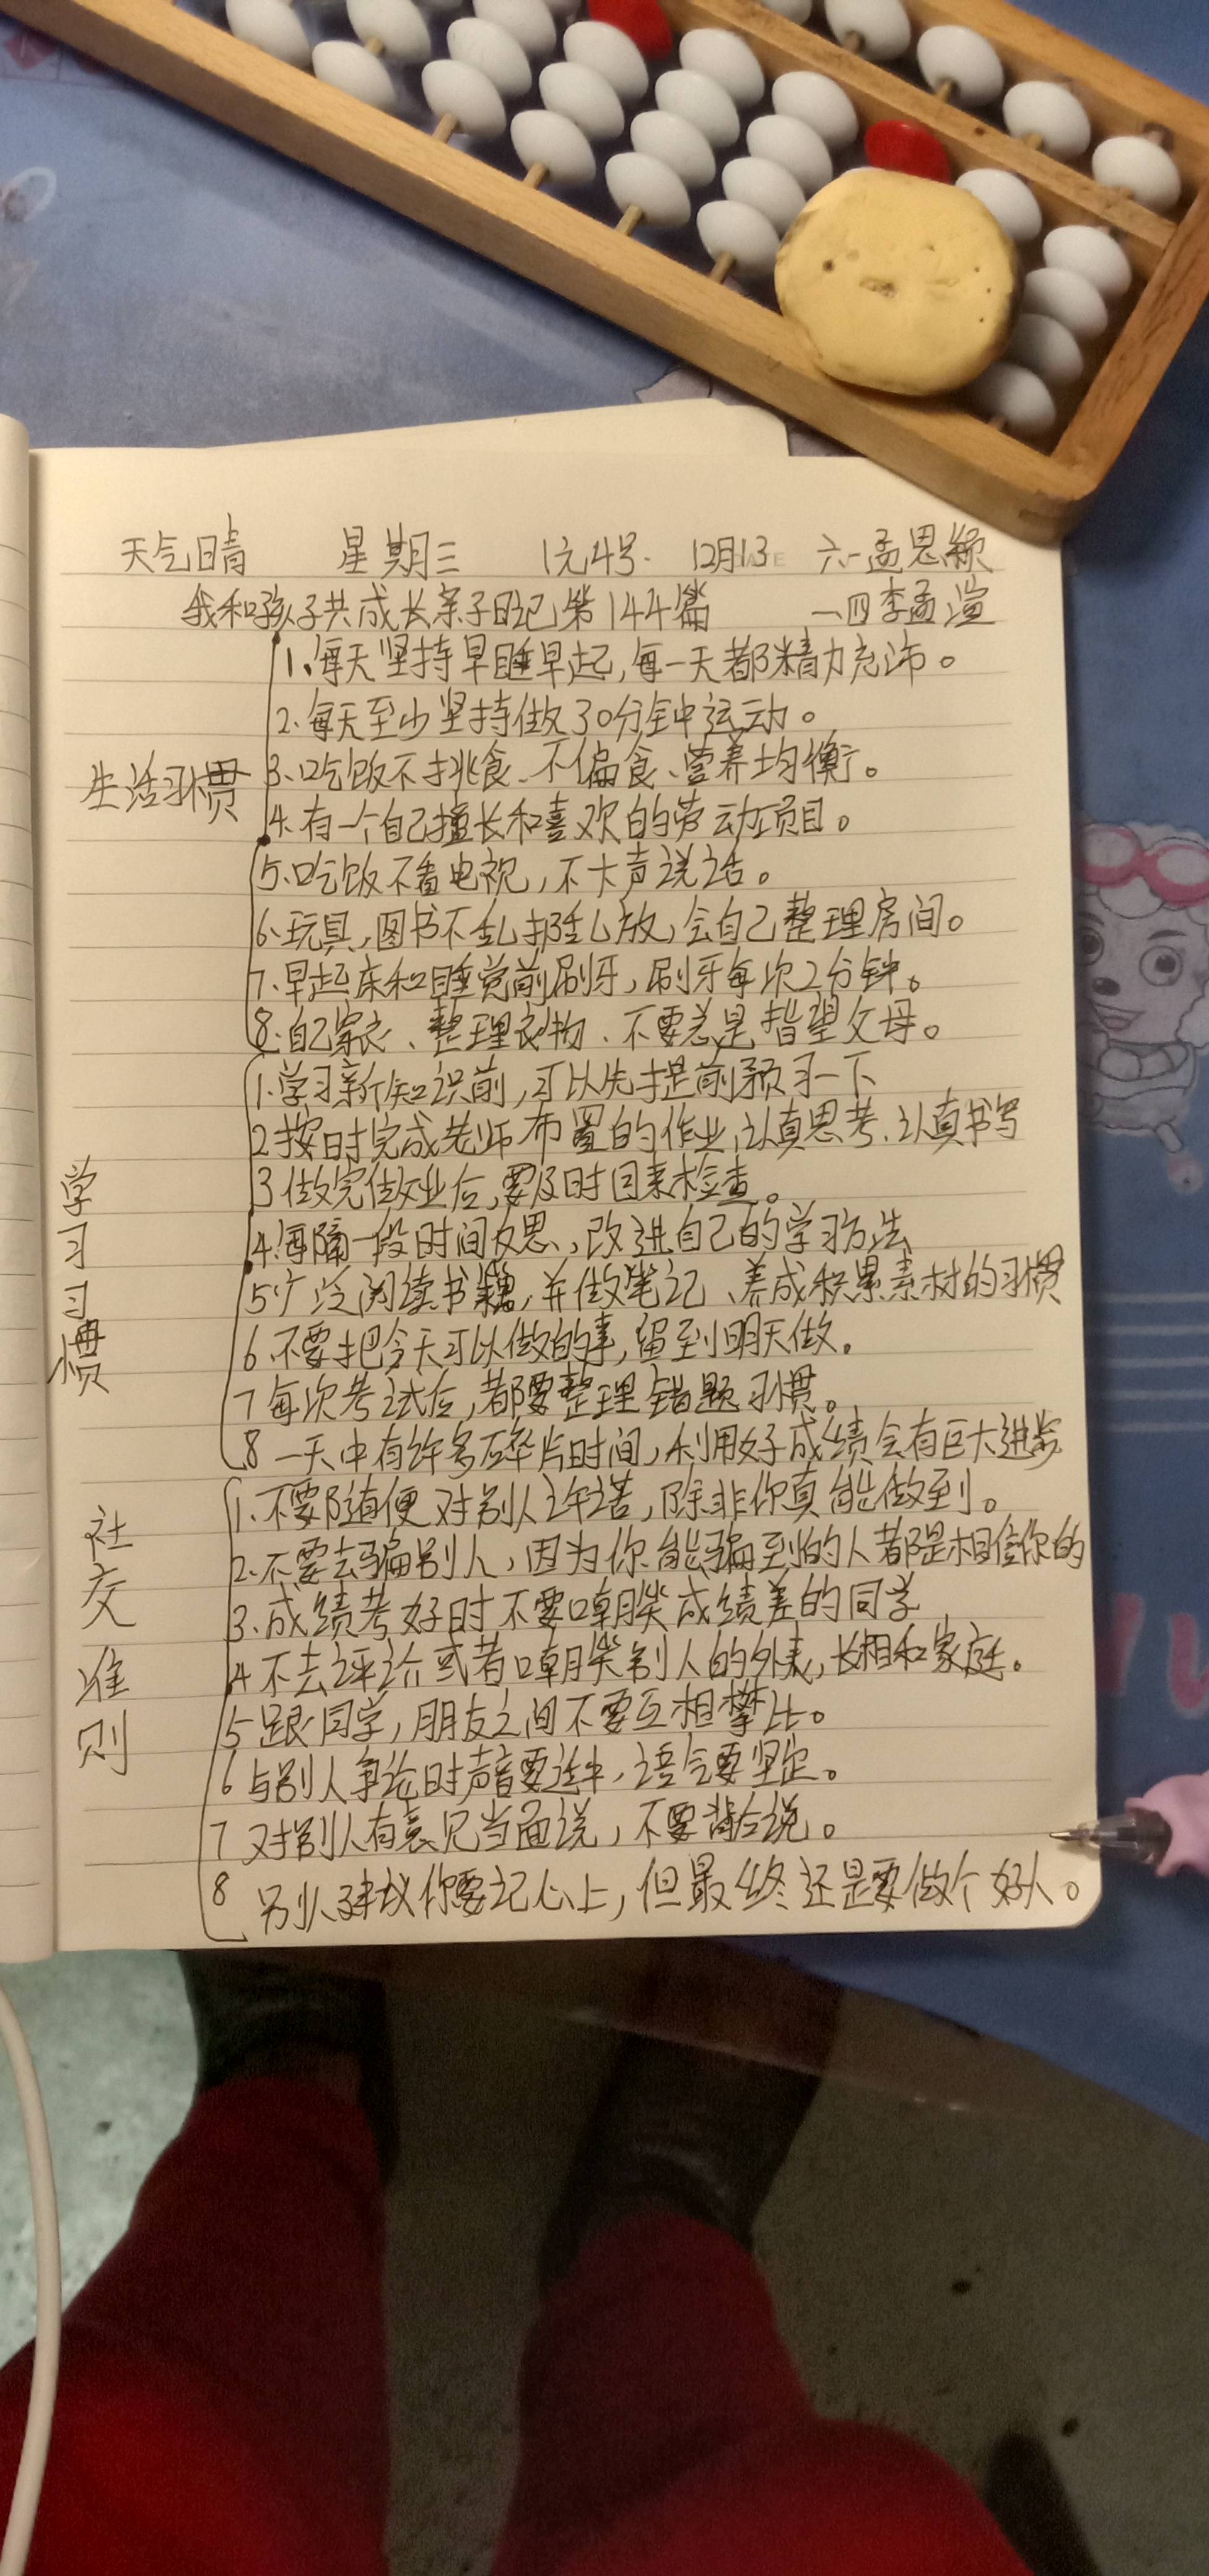 天气晴 星期三 1元4号. 12月13 六一孟思颖
我和孩子共成长亲子日记第144篇 一四李孟渲
1、每天坚持早睡早起,每一天都精力充沛。
2.每天至少坚持做30分钟运动。
生活习惯 3、吃饭不挑食、不偏食、营养均衡。
4.有一个自己擅长和喜欢的劳动项目。
5、吃饭不看电视,不大声说话。
6、玩具,图书不乱扔乱放,会自己整理房间。
7、早起床和睡觉前刷牙,刷牙每次2分钟。
8.自己穿衣、整理衣物、不要总是指望父母。
1.学习新知识前,可以先提前预习一下
2按时完成老师布置的作业,认真思考、认真书写
学习习惯 3做完做业后,要及时回来检查。
4.每隔一段时间反思,改进自己的学习方法
5广泛阅读书籍,并做笔记、养成积累素材的习惯
6.不要把今天可以做的事,留到明天做。
7每次考试后,都要整理错题习惯。
8一天中有许多碎片时间,利用好成绩会有巨大进步
1.不要随便对别人许诺,除非你真能做到。
社交准则 2.不要去骗别人,因为你能骗到的人都是相信你的
3.成绩考好时不要嘲笑成绩差的同学
4不去评论或者嘲笑别人的外表,长相和家庭。
5跟同学,朋友之间不要互相攀比。
6与别人争论时声音要,语气要坚定。
7对别人有意见当面说,不要背后说。
8别人建议你要记心上,但最终还是要做个好人。